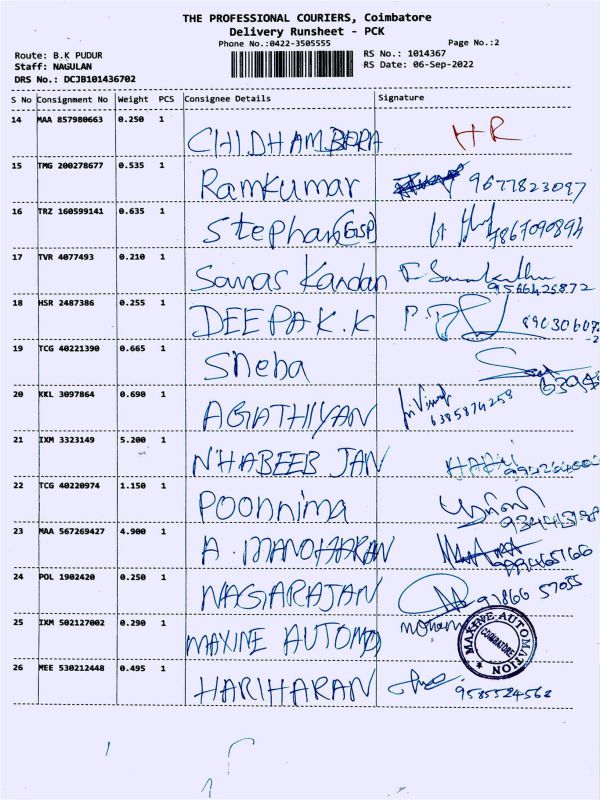 THE PROFESSIONAL COURIERS, Coimbatore
Delivery Runsheet - PCK
Phone No.:0422-3505555 Page No.:2
Route: B.K PUDUR RS No.: 1014367
Staff: NAGULAN RS Date: 06-Sep-2022
DRS No.: DCJB101436702
S No Consignment No Weight PCS Consignee Details Signature
14 MAA 857980663 0.250 1 CHIDHAMBARA HR
15 TMG 200278677 0.535 1 Ramkumar 9677823097
16 TRZ 160599141 0.635 1 Stephan (GSP) 7867090894
17 TVR 4077493 0.210 1 Sanas Kandan 9566425872
18 HSR 2487386 0.255 1 DEEPAK.K
19 TCG 40221390 0.665 1 Sheba
20 KKL 3097864 0.690 1 AGATHIYAN 6385874258
21 IXM 3323149 5.200 1 N'HABEEB JAN
22 TCG 40220974 1.150 1 Poornima
23 MAA 567269427 4.900 1 A. MANOHARAN
24 POL 1902420 0.250 1 NAGARAJAN 97866 57055
25 IXM 502127002 0.290 1 MAXINE AUTOM moham
MAXINE AUTOMATION
COIMBATORE
26 MEE 530212448 0.495 1 HARIHARAN 9585524562